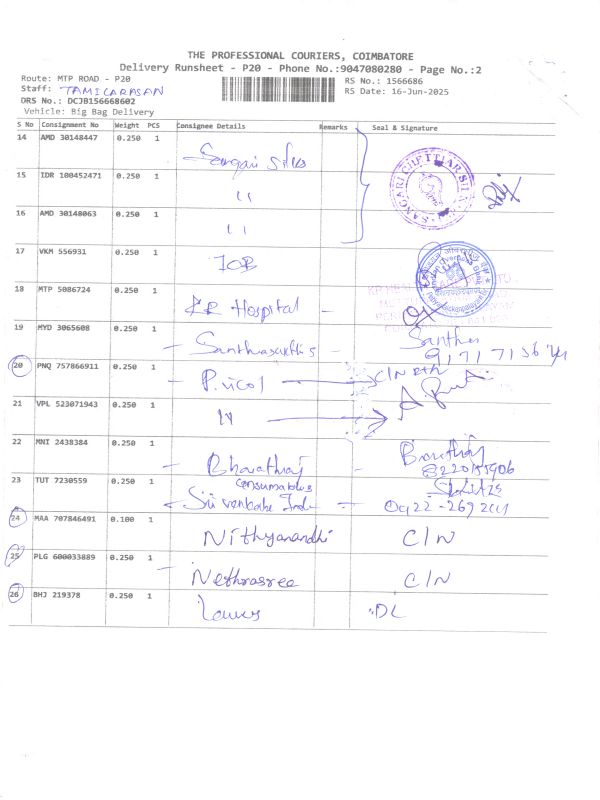 THE PROFESSIONAL COURIERS, COIMBATORE
Delivery Runsheet - P20 - Phone No.:9047080280 - Page No.:2
Route: MTP ROAD - P20
RS No.: 1566686
Staff: TAMILARASAN
RS Date: 16-Jun-2025
DRS No.: DCJB156668602
Vehicle: Big Bag Delivery
S No Consignment No Weight PCS Consignee Details Remarks Seal & Signature
14 AMD 30148447 0.250 1
15 IDR 100452471 0.250 1 11
16 AMD 30148063 0.250 1 11
SANGARI CHETTIAR SILKS
17 VKM 556931 0.250 1 IOB
18 MTP 5086724 0.250 1 KR Hospital -
19 MYD 3065608 0.250 1 - -
20 PNQ 757866911 0.250 1 - P. Ricol
21 VPL 523071943 0.250 1
22 MNI 2438384 0.250 1 - Bharathraj -
23 TUT 7230559 0.250 1 consumables
24 MAA 707846491 0.100 1 Nithyanandhi C/N
25 PLG 600033889 0.250 1 - Nethrasree C/N
26 BHJ 219378 0.250 1 DL